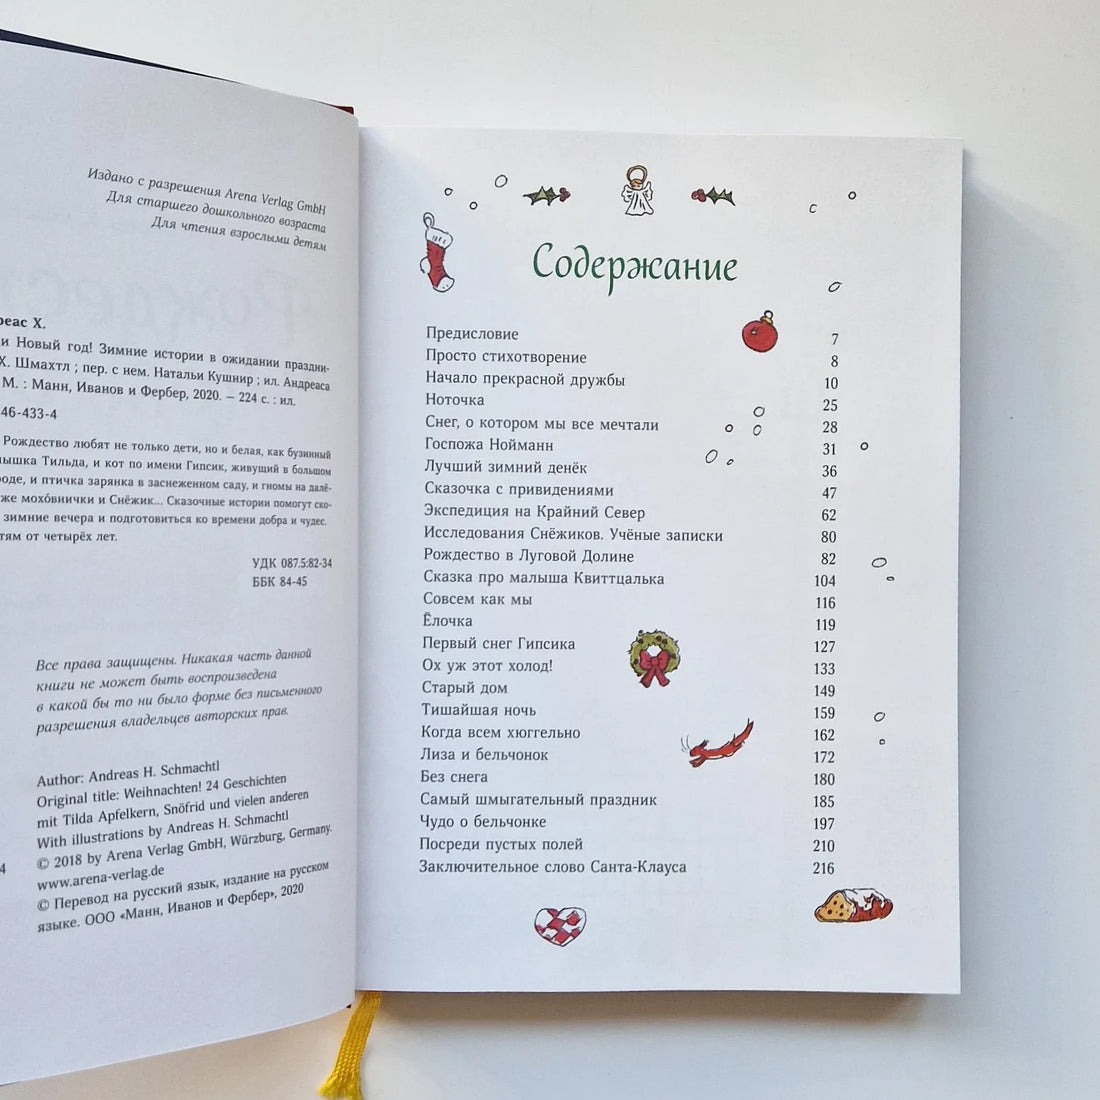 Издано с разрешения Arena Verlag GmbH
Для старшего дошкольного возраста
Для чтения взрослыми детям
реас Х.
и Новый год! Зимние истории в ожидании праздни-
Х. Шмахтл ; пер. с нем. Натальи Кушнир ; ил. Андреаса
М. : Манн, Иванов и Фербер, 2020. — 224 с. : ил.
46-433-4
Рождество любят не только дети, но и белая, как бузинный
мышка Тильда, и кот по имени Гипсик, живущий в большом
роде, и птичка зарянка в заснеженном саду, и гномы на далё-
же мохóвнички и Снёжик... Сказочные истории помогут ско-
зимние вечера и подготовиться ко времени добра и чудес.
тям от четырёх лет.
УДК 087.5:82-34
ББК 84-45
Все права защищены. Никакая часть данной
книги не может быть воспроизведена
в какой бы то ни было форме без письменного
разрешения владельцев авторских прав.
Author: Andreas H. Schmachtl
Original title: Weihnachten! 24 Geschichten
mit Tilda Apfelkern, Snöfrid und vielen anderen
With illustrations by Andreas H. Schmachtl
© 2018 by Arena Verlag GmbH, Würzburg, Germany.
www.arena-verlag.de
4 © Перевод на русский язык, издание на русском
языке. ООО «Манн, Иванов и Фербер», 2020
Содержание
Предисловие 7
Просто стихотворение 8
Начало прекрасной дружбы 10
Ноточка 25
Снег, о котором мы все мечтали 28
Госпожа Нойманн 31
Лучший зимний денёк 36
Сказочка с привидениями 47
Экспедиция на Крайний Север 62
Исследования Снёжиков. Учёные записки 80
Рождество в Луговой Долине 82
Сказка про малыша Квиттцалька 104
Совсем как мы 116
Ёлочка 119
Первый снег Гипсика 127
Ох уж этот холод! 133
Старый дом 149
Тишайшая ночь 159
Когда всем хюггельно 162
Лиза и бельчонок 172
Без снега 180
Самый шмыгательный праздник 185
Чудо о бельчонке 197
Посреди пустых полей 210
Заключительное слово Санта-Клауса 216